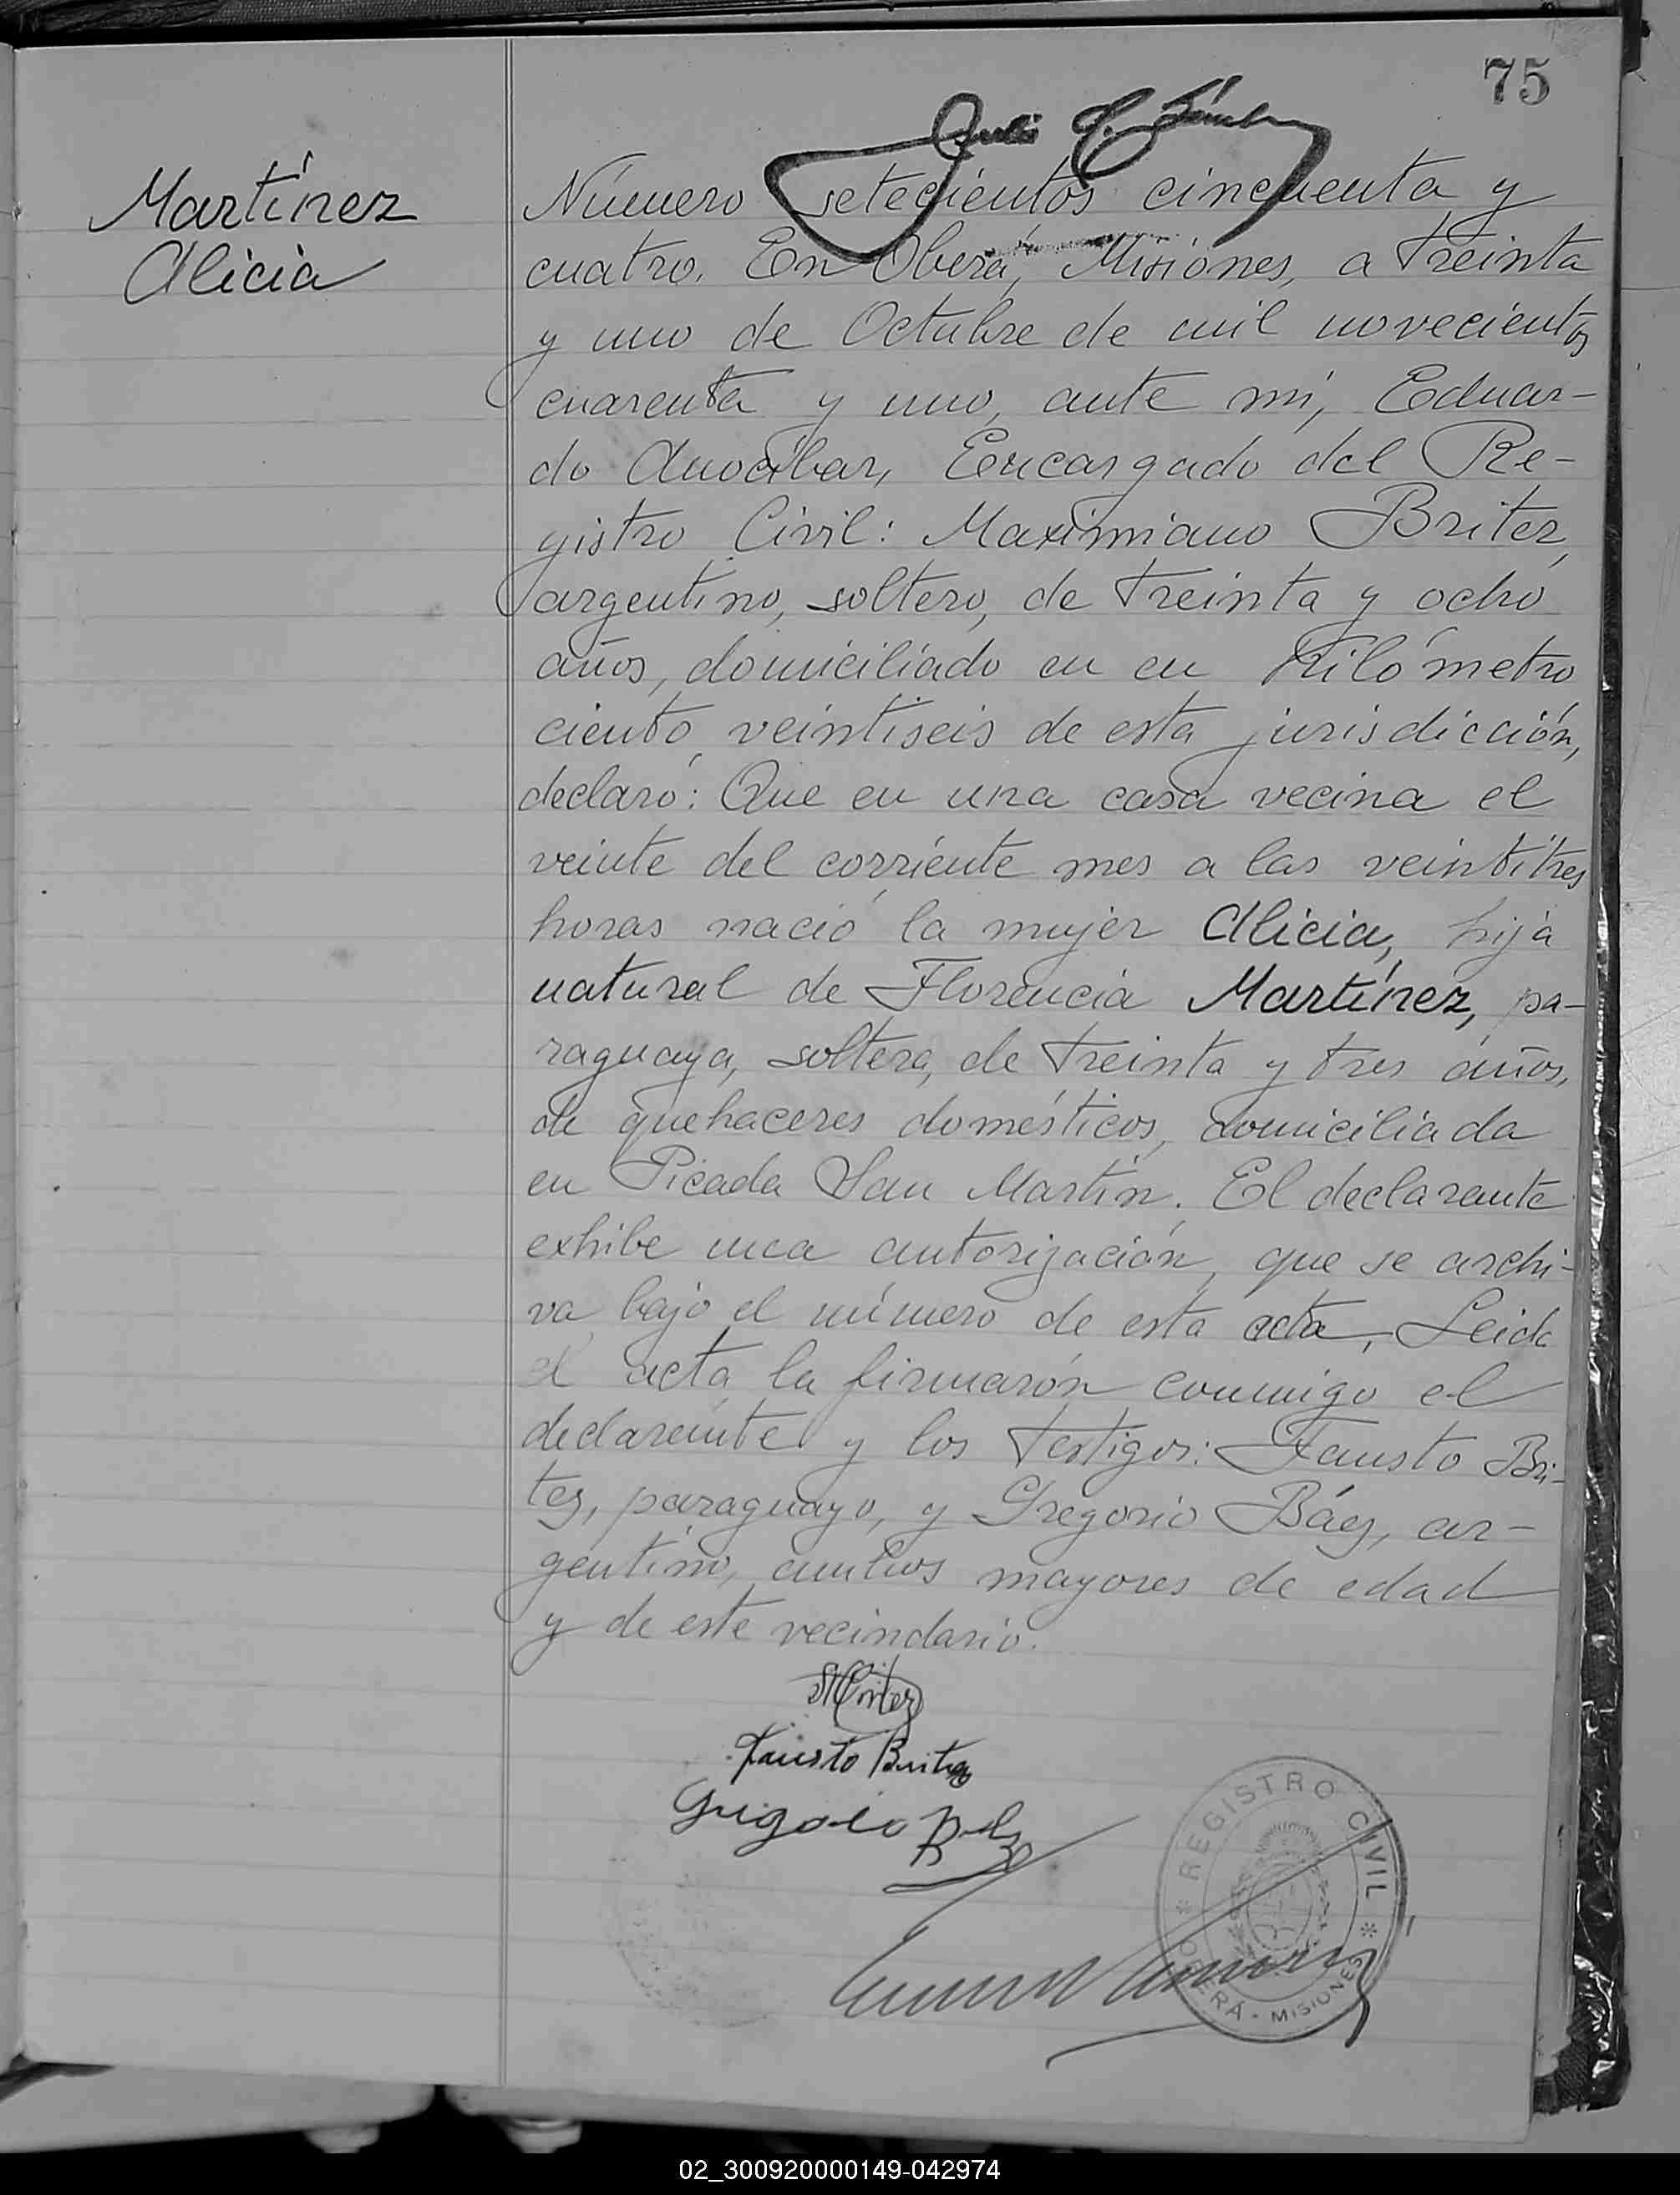 75
Martínez
Alicia
Número setecientos cincuenta y
cuatro. En Oberá, Misiones, a treinta
y uno de Octubre de mil novecientos
cuarenta y uno, ante mí, Eduar-
do Anocíbar, Encargado del Re-
gistro Civil: Maximiano Britez,
argentino, soltero, de treinta y ocho
años, domiciliado en en Kilómetro
ciento veintiseis de esta jurisdicción,
declaró: Que en una casa vecina el
veinte del corriente mes a las veintitres
horas nació la mujer Alicia, hija
natural de Florencia Martínez, pa-
raguaya, soltera, de treinta y tres años,
de quehaceres domésticos, domiciliada
en Picada San Martín. El declarante
exhibe una autorización, que se archi-
va bajo el número de esta acta, Leida
el acta la firmarón conmigo el
declarante y los testigos: Fausto Bri-
tez, paraguayo, y Gregorio Báez, ar-
gentino, ambos mayores de edad
y de este vecindario.
Fausto Britez
REGISTRO CIVIL
OBERÁ - MISIONES
02_300920000149-042974